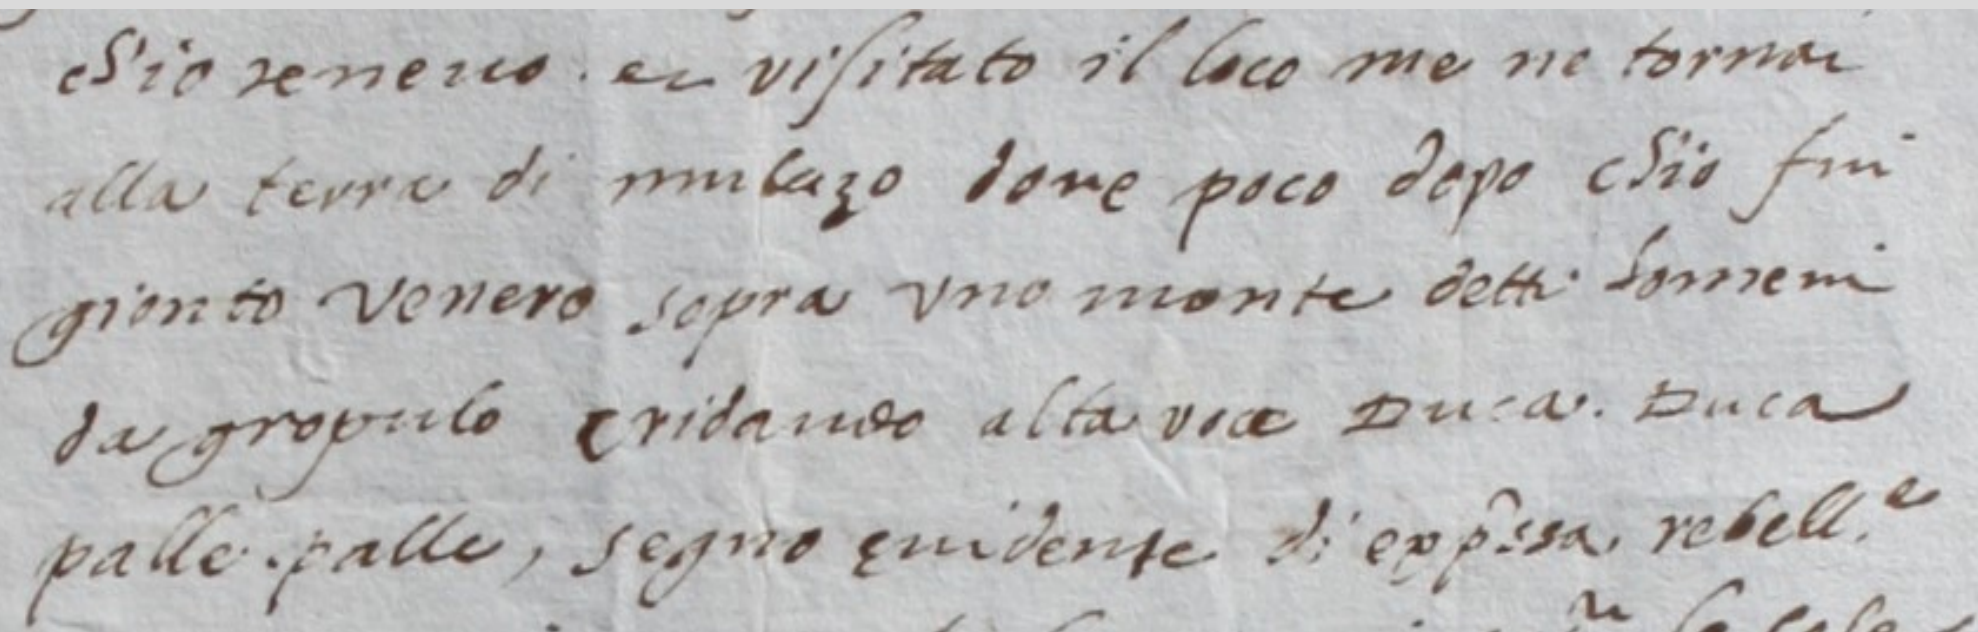 ch'io teneuo. et visitato il loco me ne tornai
alla terra di mulazo doue poco dopo ch'io fui
gionto venero sopra vno monte detti homeni
da gropulo cridando alta voce Duca. Duca
palle. palle, segno euidente di exp̃ssa. rebell.e